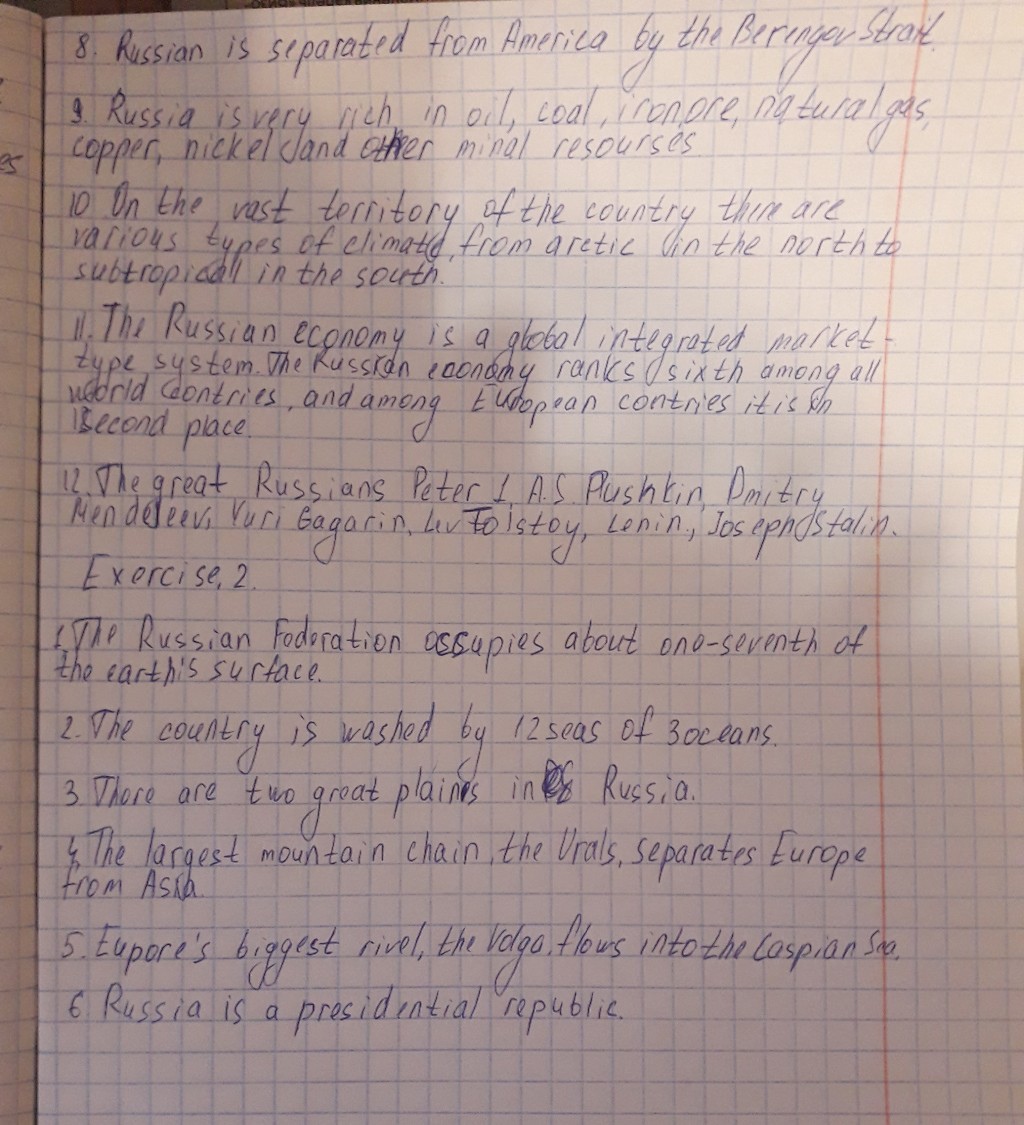 8. Russian is separated from America by the Berengov Strait.
9. Russia is very rich in oil, coal, iron ore, natural gas,
copper, nickel and other minal resourses
10 On the vast territory of the country there are
various types of climate, from arctic in the north to
subtropicall in the south.
11. The Russian economy is a global integrated market-
type system. The Russian economy ranks sixth among all
world contries, and among European contries it is in
second place.
12. The great Russians Peter I, A.S. Plushkin, Dmitry
Mendeleev, Yuri Gagarin, Lev Tolstoy, Lenin, Joseph Stalin.
Exercise, 2.
1. The Russian Foderation ossupies about one-seventh of
the earth's surface.
2. The country is washed by 12 seas of 3 oceans.
3 There are two great plains in Russia.
4. The largest mountain chain, the Urals, separates Europe
from Asia.
5. Eupore's biggest rivel, the Volga, flows into the Caspian Sea.
6 Russia is a presidential republic.
es